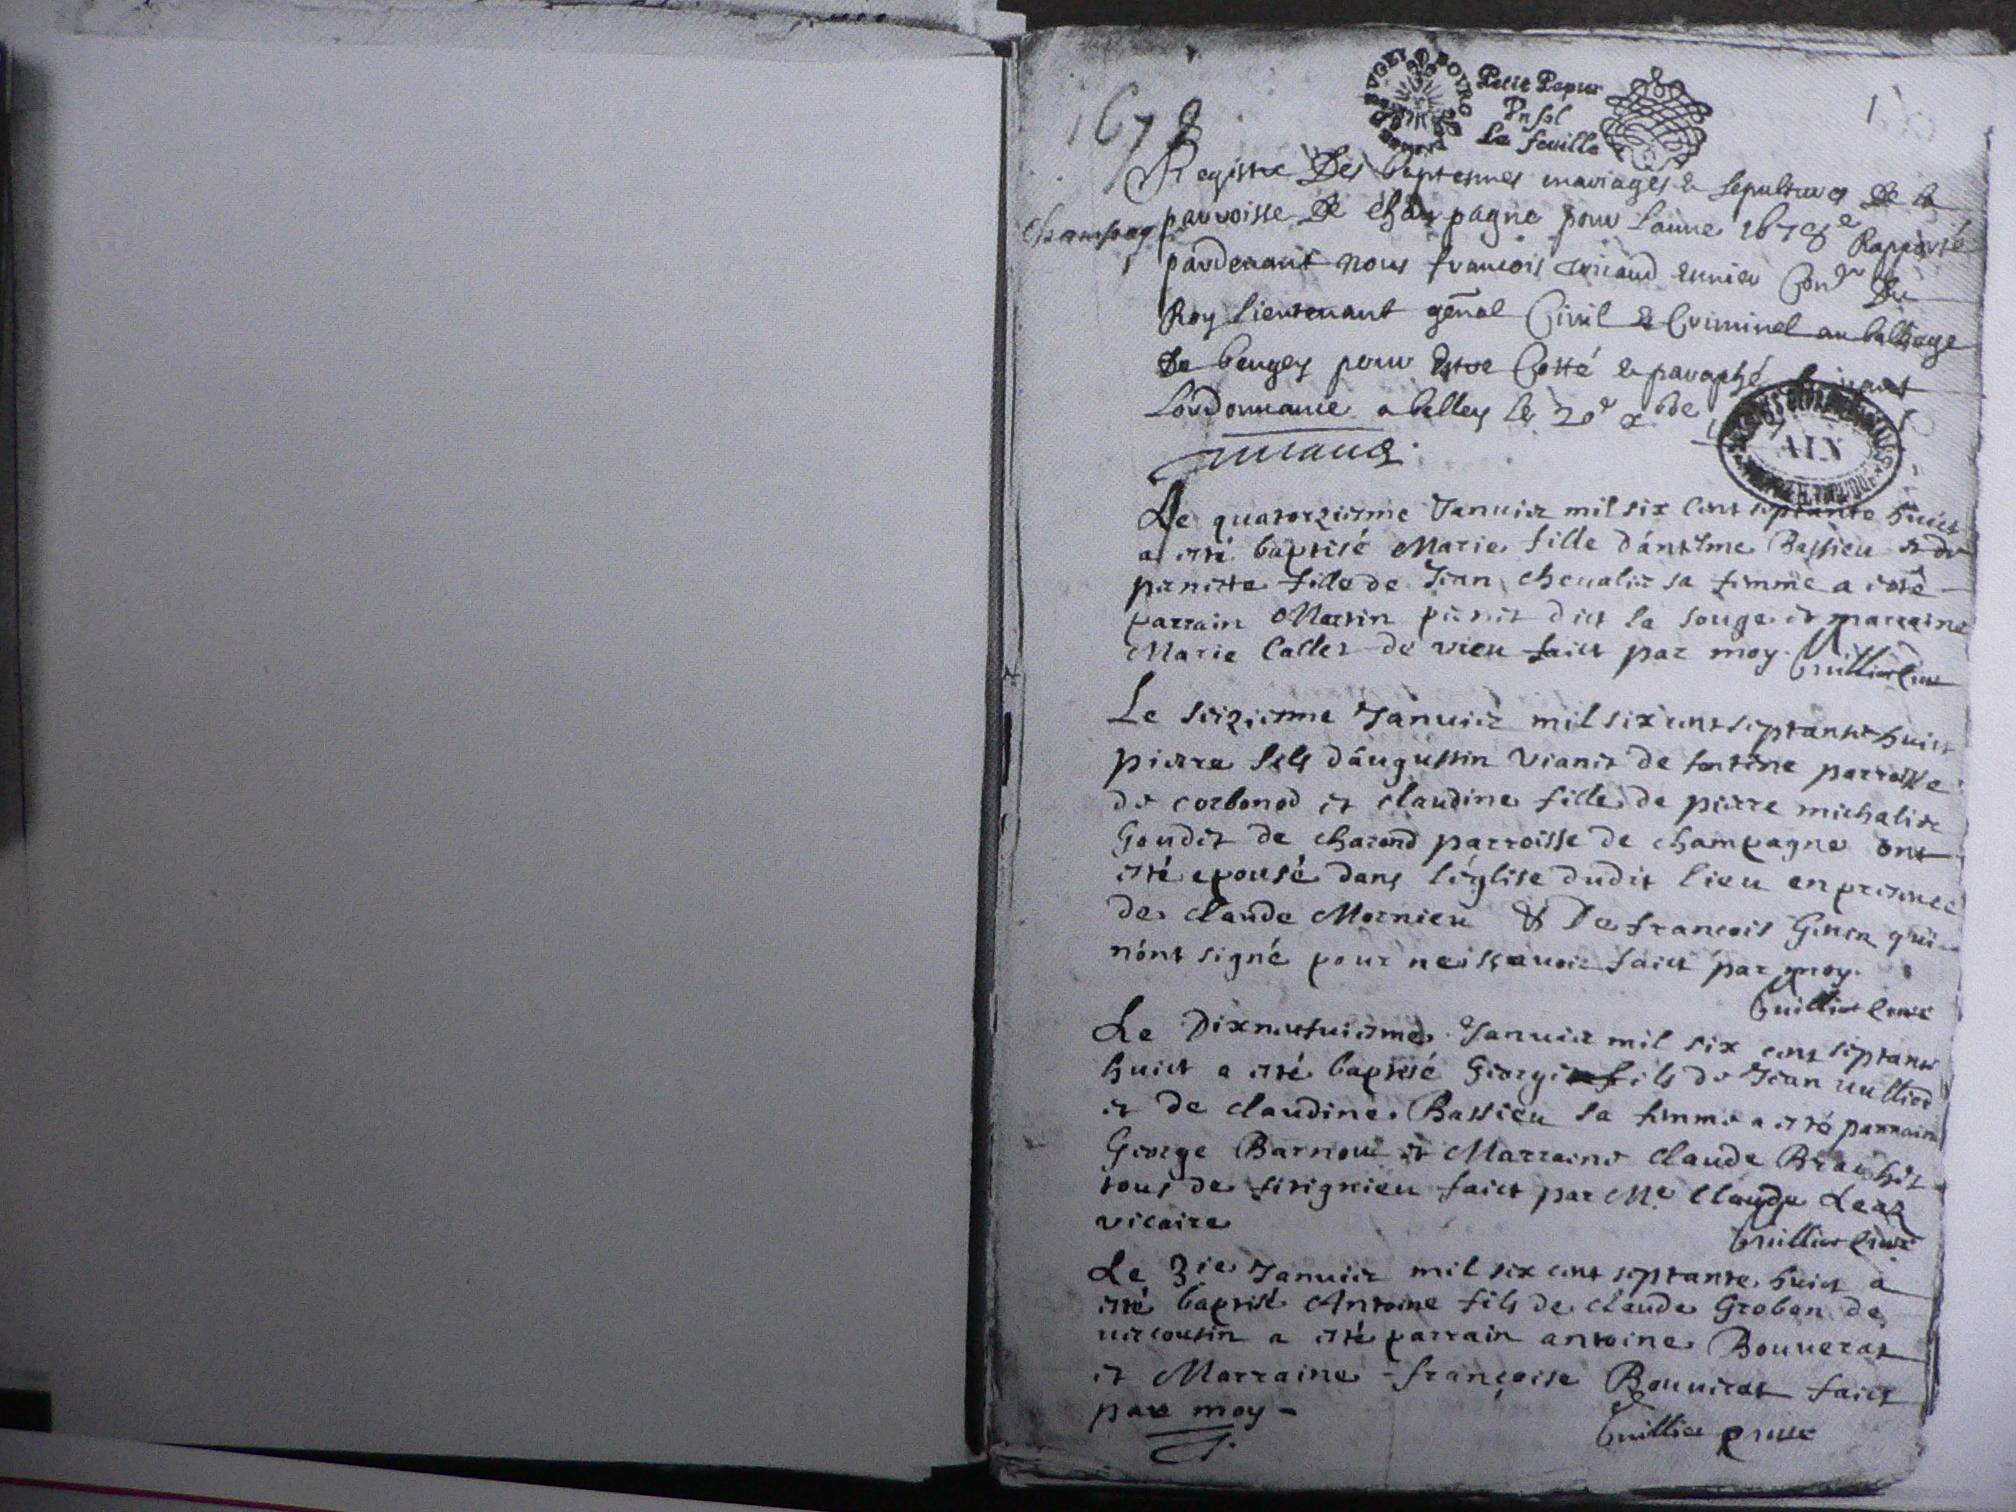 BVGEY BOVRG
Petit Papier
Un sol
La feuille
1
1678
Registre Des baptesmes mariages & sepultures De la
Champag
parroisse De Champagne pour Lanne 1678 Rapporté
pardevant nous francois
Roy Lieutenant gñal Civil & Criminel au balliage
De beugey pour Estre Cotté & paraphé suivant
Lordonnance a belley le 20e xbre
AIN
Le quatorzieme Januier mil six cent septante huict
a esté baptisé Marie fille dánthme Bassieu et de
pernette fille de Jean cheualier sa femme a esté
parrain Martin dict la souge et marraine
Marie Callet de vieu faict par moy. Cuillier Curé
Le seizieme Januier mil six cent septante huict
pierre fils dáugustin Vianet de parroisse
de corbonod et claudine fille de pierre michalier
Goudet de charond parroisse de champagne ont
esté epousé dans léglise dudit lieu en presence
de claude Mornieu & De francois qui
nónt signé pour ne sçauoir faict par moy.
Cuillier Curé
Le Dixneufuieme Januier mil six cent septante
huict a esté baptisé George fils de Jean
et de claudine Bassieu sa femme a esté parrain
George Barnou et Marraine claude
tous de faict par Me Claude
vicaire
Cuillier Curé
Le 3ie Januier mil six cent septante huict a
esté baptisé Antoine fils de claude Groban de
a esté parrain antoine Bouuerat
et Marraine françoise Bouuerat faict
par moy -
Cuillier Curé